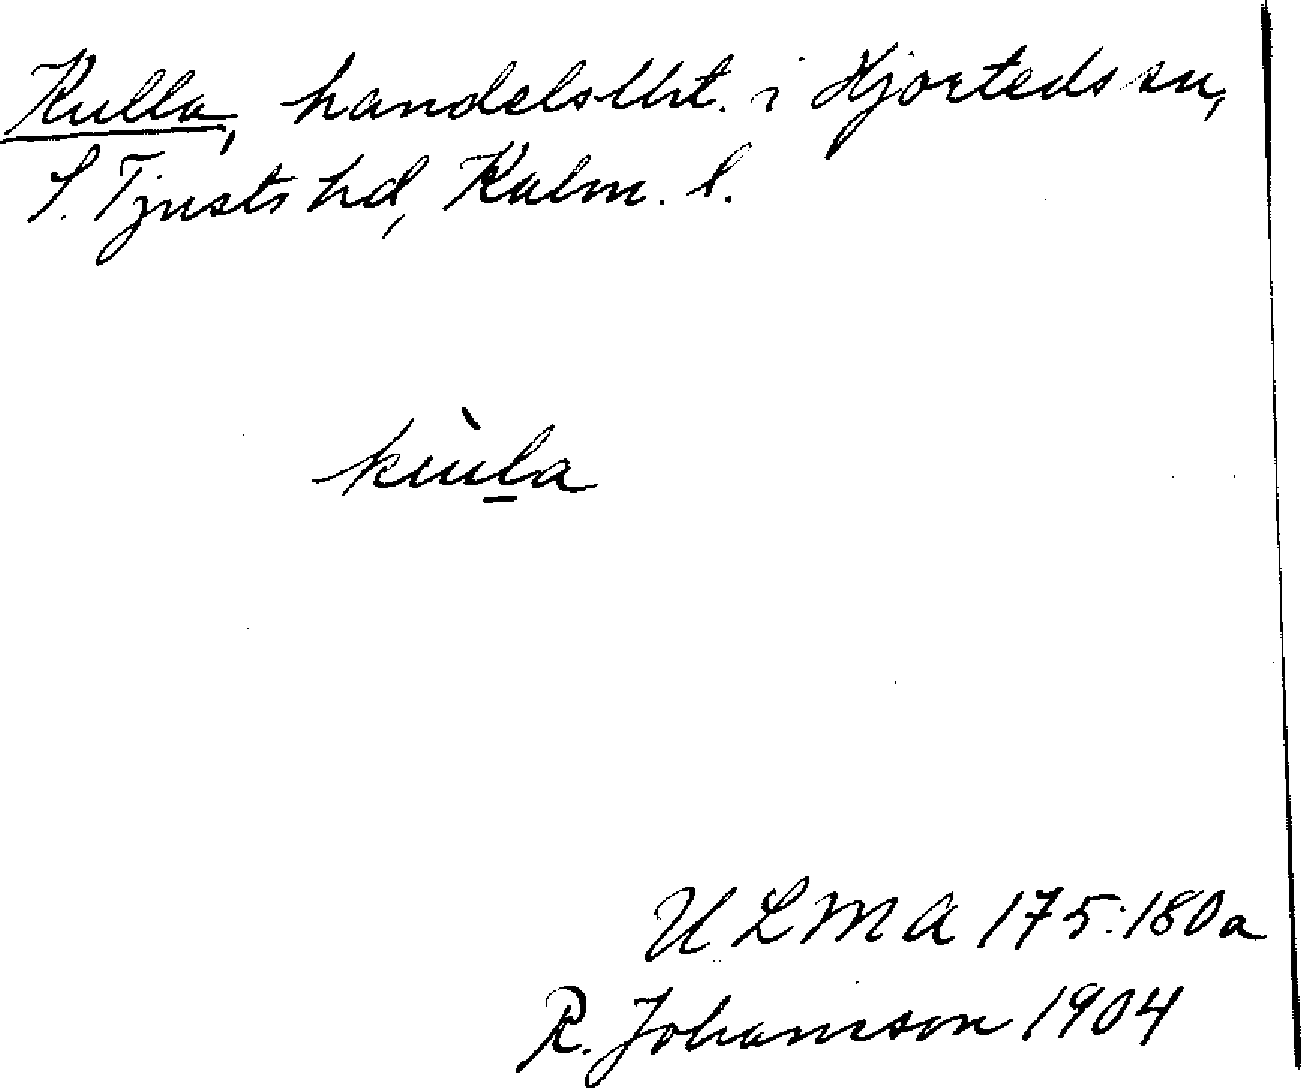 Kulla, handelslht. i Hjorteds sn,
S. Tjusts hd, Kalm. l.
kùla
ULMA 175:180a
R. Johanson 1904